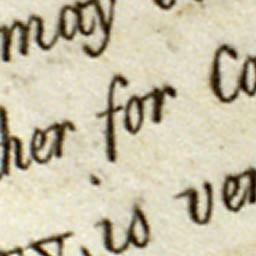 may
her for Co
is ver